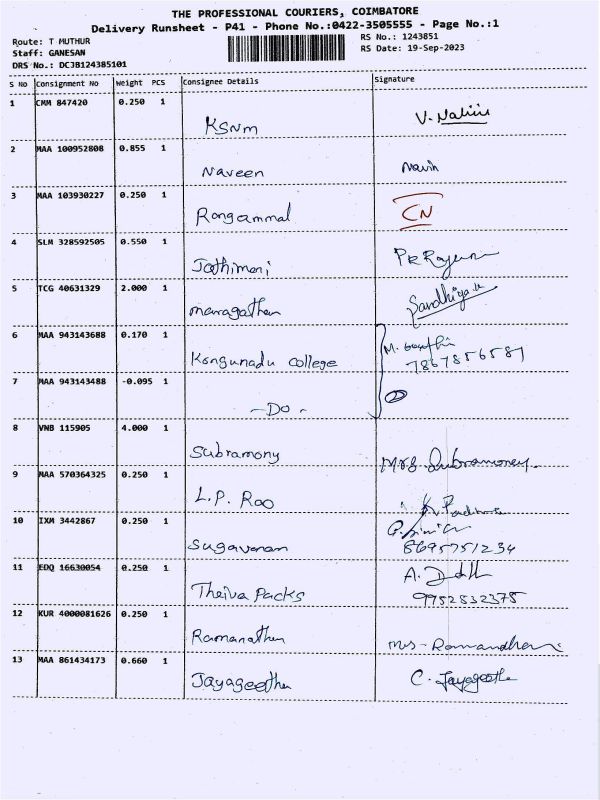 THE PROFESSIONAL COURIERS, COIMBATORE
Delivery Runsheet - P41 - Phone No.:0422-3505555 - Page No.:1
Route: T MUTHUR
RS No.: 1243851
Staff: GANESAN
RS Date: 19-Sep-2023
DRS No.: DCJB124385101
S No Consignment No Weight PCS Consignee Details Signature
1 CMM 847420 0.250 1
KSNM V. Nalini
2 MAA 100952808 0.855 1
Naveen Navin
3 MAA 103930227 0.250 1
Rangammal CN
4 SLM 328592505 0.550 1
Jothimani
5 TCG 40631329 2.000 1
maragatham Sandhiya
6 MAA 943143688 0.170 1
Kongunadu College M.
7867856587
7 MAA 943143488 -0.095 1
- Do -
8 VNB 115905 4.000 1
Subramony Mrs Subramoney
9 MAA 570364325 0.250 1
L.P. Rao K. Padma
10 IXM 3442867 0.250 1
Sugavanam 8695751234
11 EDQ 16630054 0.250 1
Theiva Packs A.
9952832375
12 KUR 4000081626 0.250 1
Ramanathan Mrs -
13 MAA 861434173 0.660 1
Jayageetha C. Jayageetha